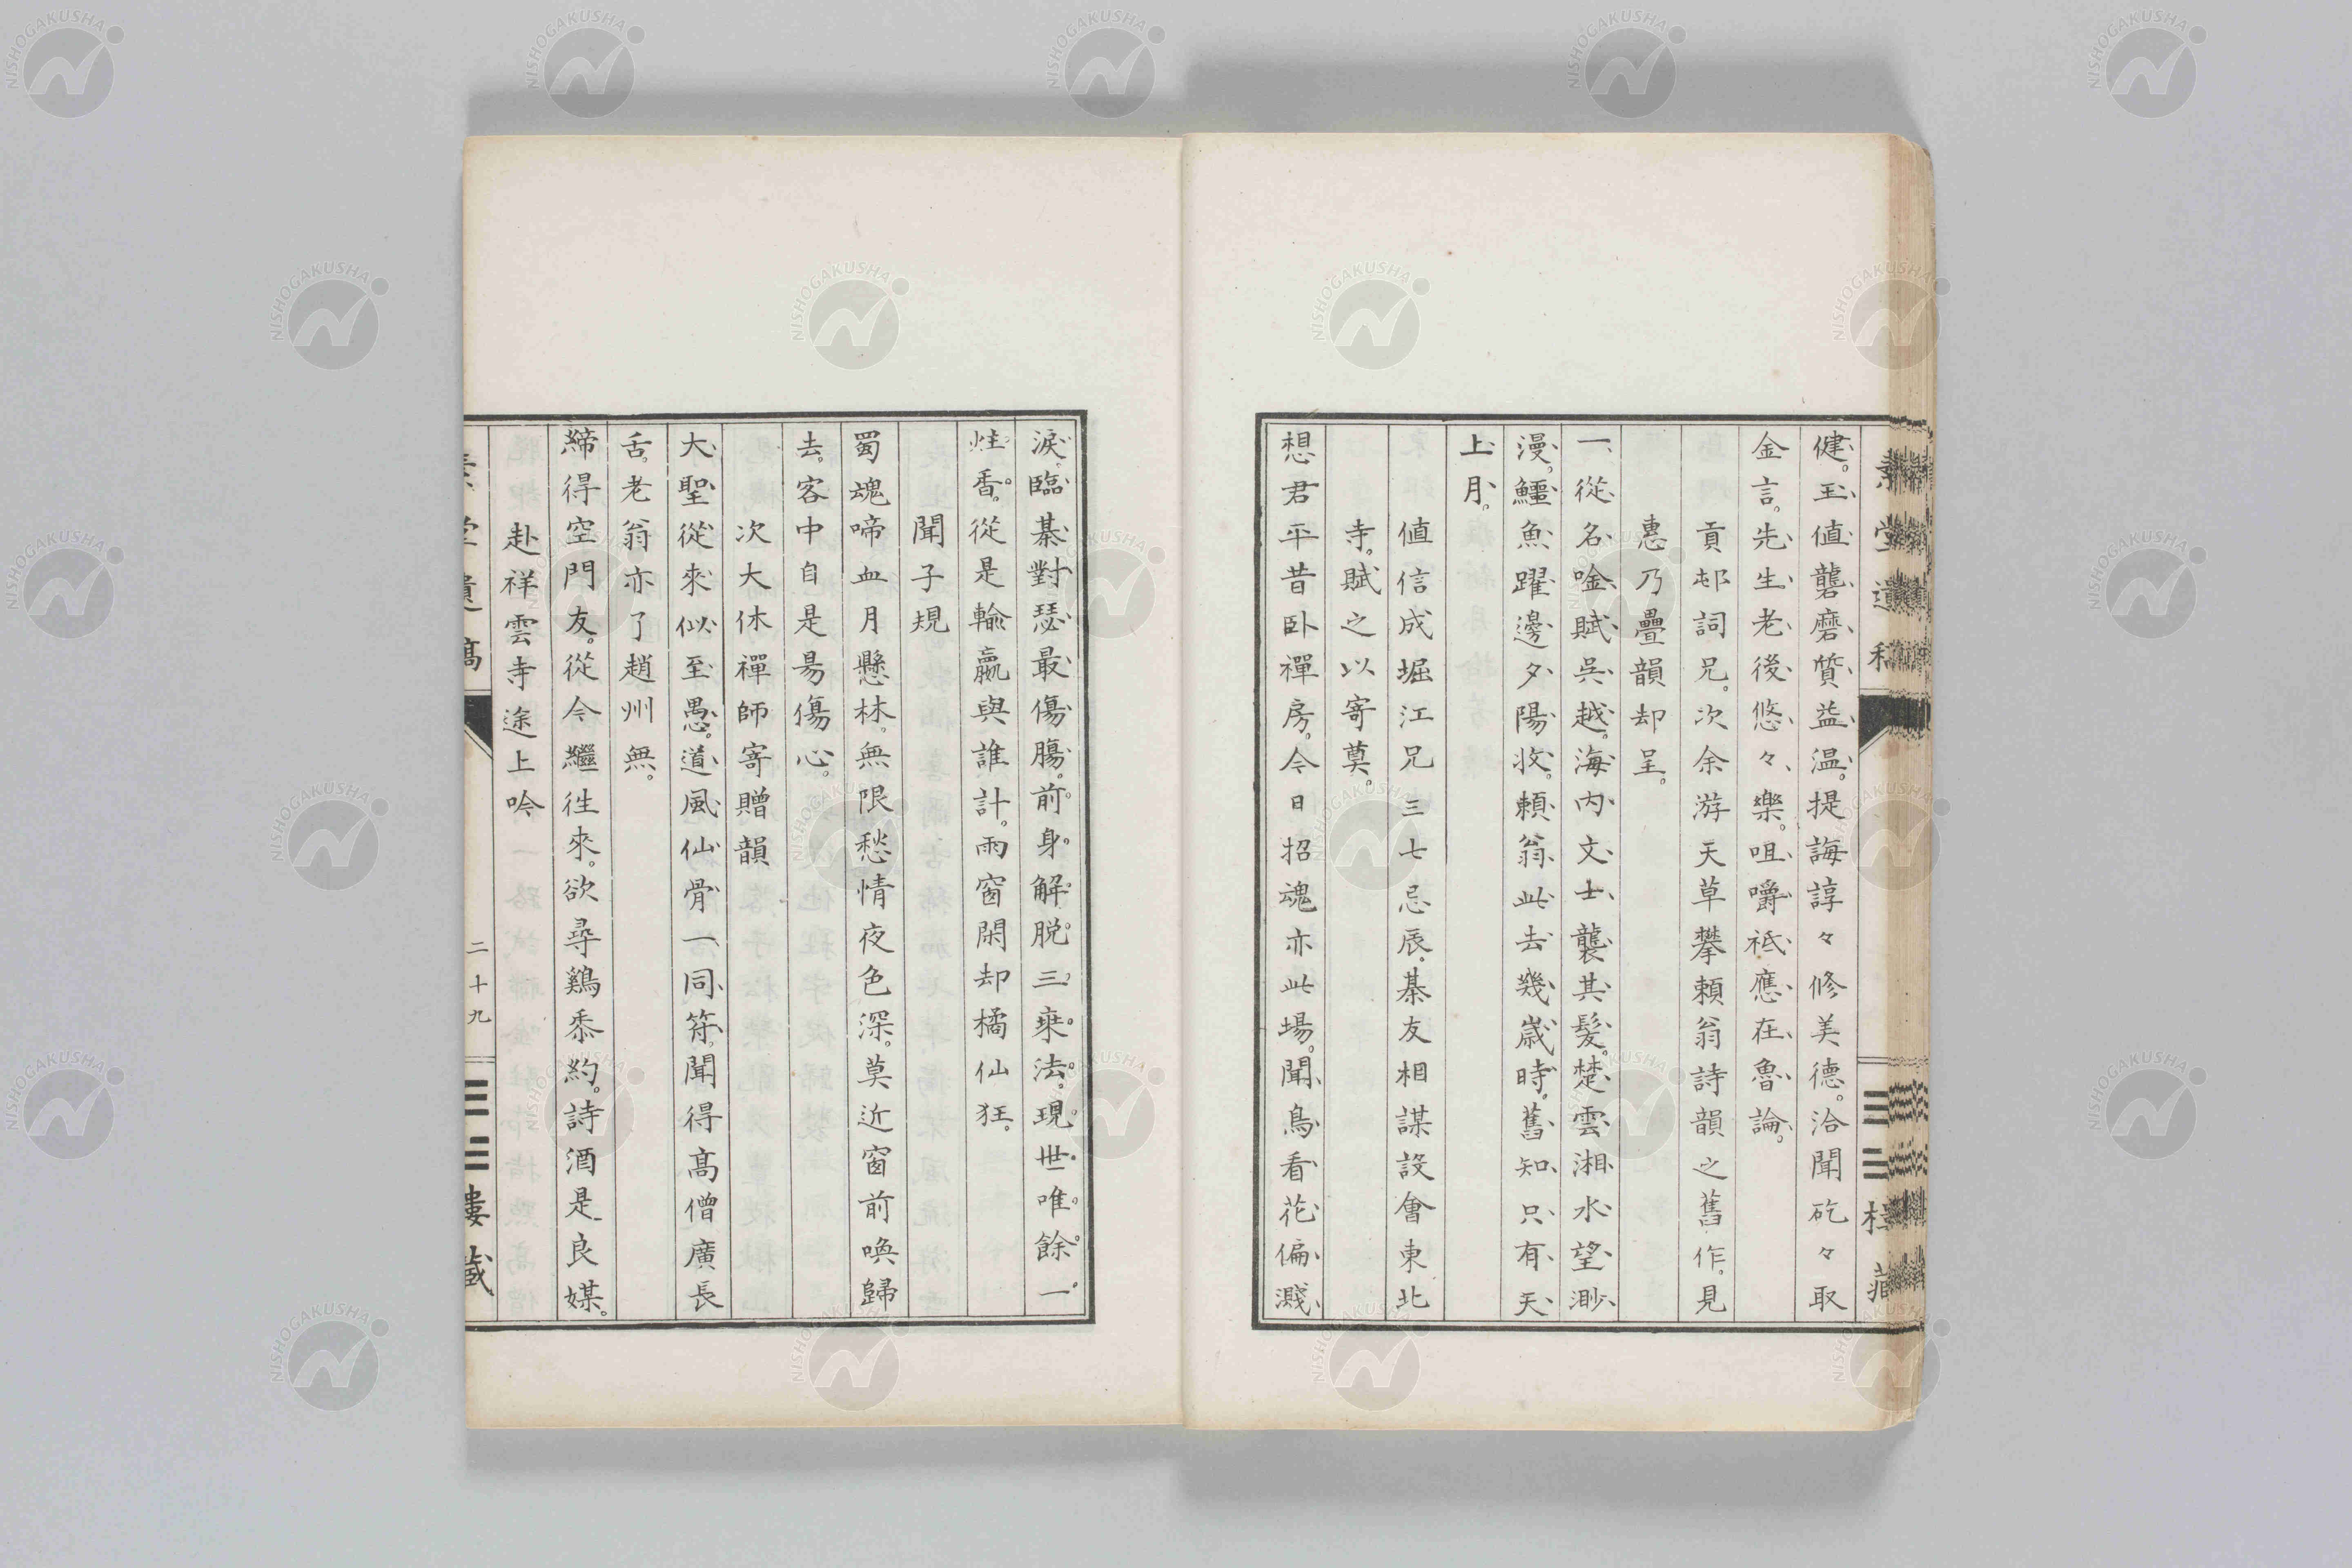 健。玉値礱磨質益温。提誨諄々修美德。洽聞矻々取
金言。先生老後悠々樂。咀嚼祗應在魯論。
貢邨詞兄。次余游天草攀賴翁詩韻之舊作。見
惠乃疊韻却呈。
一從名唫賦呉越。海内文士襲其髮。楚雲湘水望渺
漫。鱷魚躍邊夕陽收。賴翁此去幾歳時。舊知只有天
上月。
値信成堀江兄三七忌辰。棊友相謀設會東北
寺。賦之以寄奠。
想君平昔卧禪房。今日招魂亦此場。聞鳥看花偏濺
淚。臨棊對瑟最傷膓。前身解脱三乗法。現世唯餘一
炷香。從是輸贏與誰計。雨窗閑却橘仙狂。
聞子規
蜀魂啼血月懸林。無限愁情夜色深。莫近窗前喚歸
去。客中自是易傷心。
次大休禪師寄贈韻
大聖從來似至愚。道風仙骨一同符。聞得髙僧廣長
舌。老翁亦了趙州無。
締得空門友。從今繼徃來。欲尋鷄黍約。詩酒是良媒。
赴祥雲寺途上吟
二十九